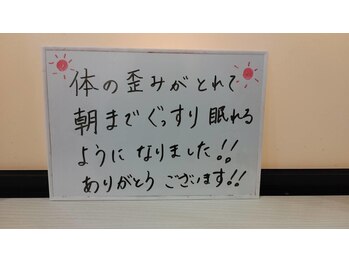 体の歪みがとれて
朝までぐっすり眠れる
ようになりました!!
ありがとうございます!!